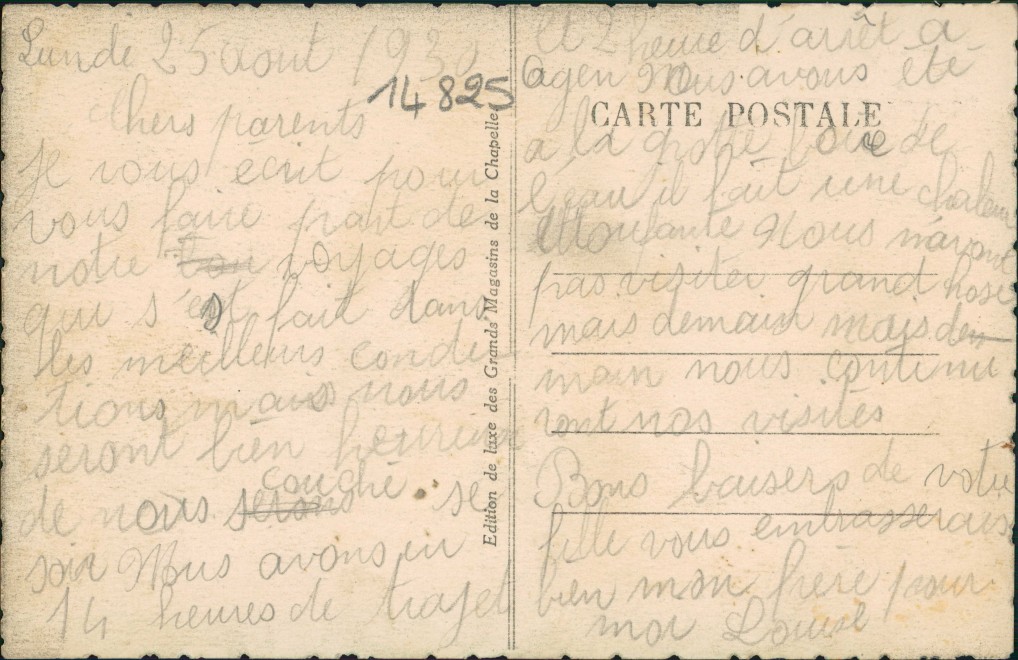 Lunde 25 aout 1930
14825
Chers parents
Je vous écrit pour
vous faire part de
notre voyages
qui s'est fait dans
les meilleurs condi
tions mais nous
seront bien heureuse
couché
de nous serons se
soir Nous avons eu
14 heures de trajet
Edition de luxe des Grands Magasins de la Chapelle
et 2 heure d'arrêt a
agen Nous avons été
CARTE POSTALE
a la grotte boire de
l'eau il fait une chaleur
étoufante Nous n'avont
pas visiter grand chose
mais demain mais de
main nous continu
ront nos visites
Bons baisers de votre
fille vous embrasserais
bien mon frère pour
moi Louise